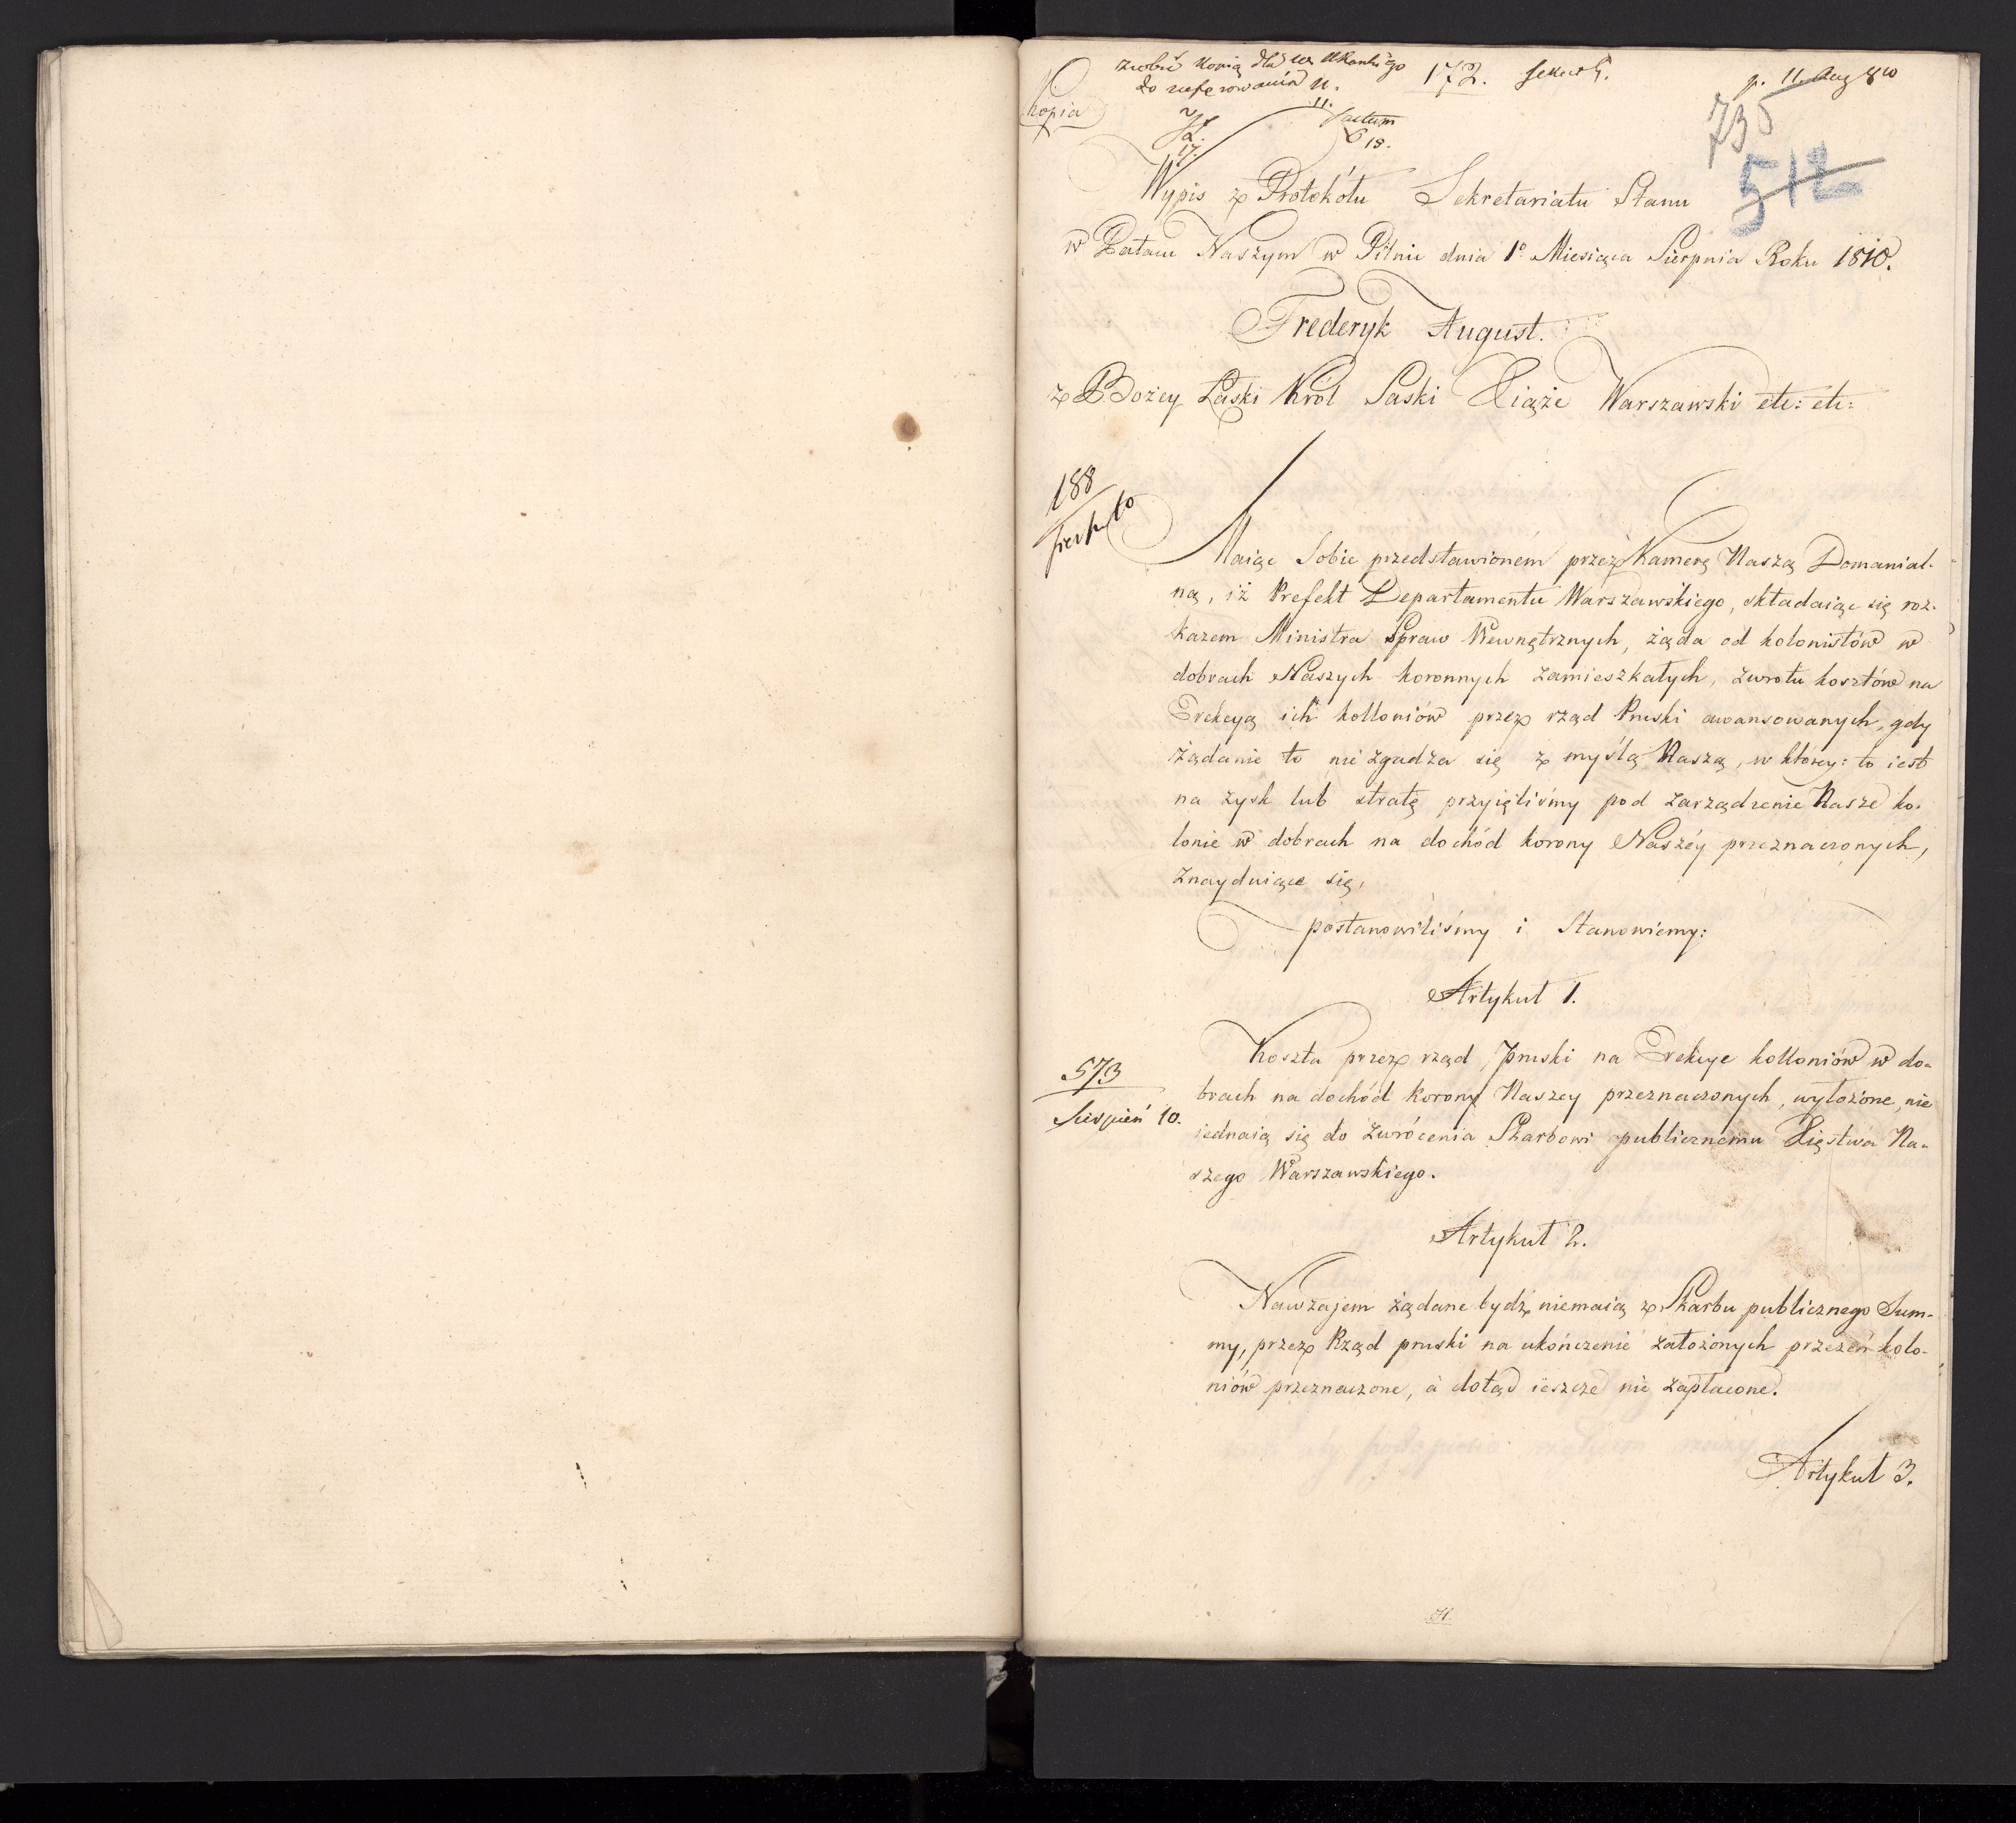 zrobić kopią dla
do referowania
172.
p. 11 Aug
Kopia
17.
11.
factum
18.
735
512
Wypis z Protokółu Sekretariatu Stanu
w Pałacu Naszym w Pilnic dnia 1º Miesiąca Sierpnia Roku 1810.
Frederyk August.
z Bożey Łaski Król Saski Xiąże Warszawski etc: etc:
188
Maiąc Sobie przedstawionem przez Kamerę Naszą Domanial-
ną, iż Prefekt Departamentu Warszawskiego, składaiąc się roz-
kazem Ministra Spraw Wewnętrznych, żąda od kolonistów w
dobrach Naszych koronnych zamieszkałych, zwrotu kosztów na
Erekcyą ich kolloniów przez rząd Pruski awansowanych, gdy
żądanie to nie zgadza się z myślą Naszą, w którey: to iest
na zysk lub stratę przyięliśmy pod zarządzenie Nasze ko-
lonie w dobrach na dochód korony Naszéy przeznaczonych,
znayduiące się,
postanowiliśmy i Stanowiemy:
Artykuł 1.
573
Sierpień 10.
Koszta przez rząd pruski na Erekcye kolloniów w do-
brach na dochód korony Naszey przeznaczonych, wyłożone, nie
iednaią się do zwrócenia Skarbowi publicznemu Xięstwa Na-
szego Warszawskiego.
Artykuł 2.
Nawzajem żądane bydź niemaią z Skarbu publicznego Sum-
my, przez Rząd pruski na ukończenie założonych przezeń kolo-
niów przeznaczone, a dotąd ieszcze nie zapłacone.
Artykuł 3.